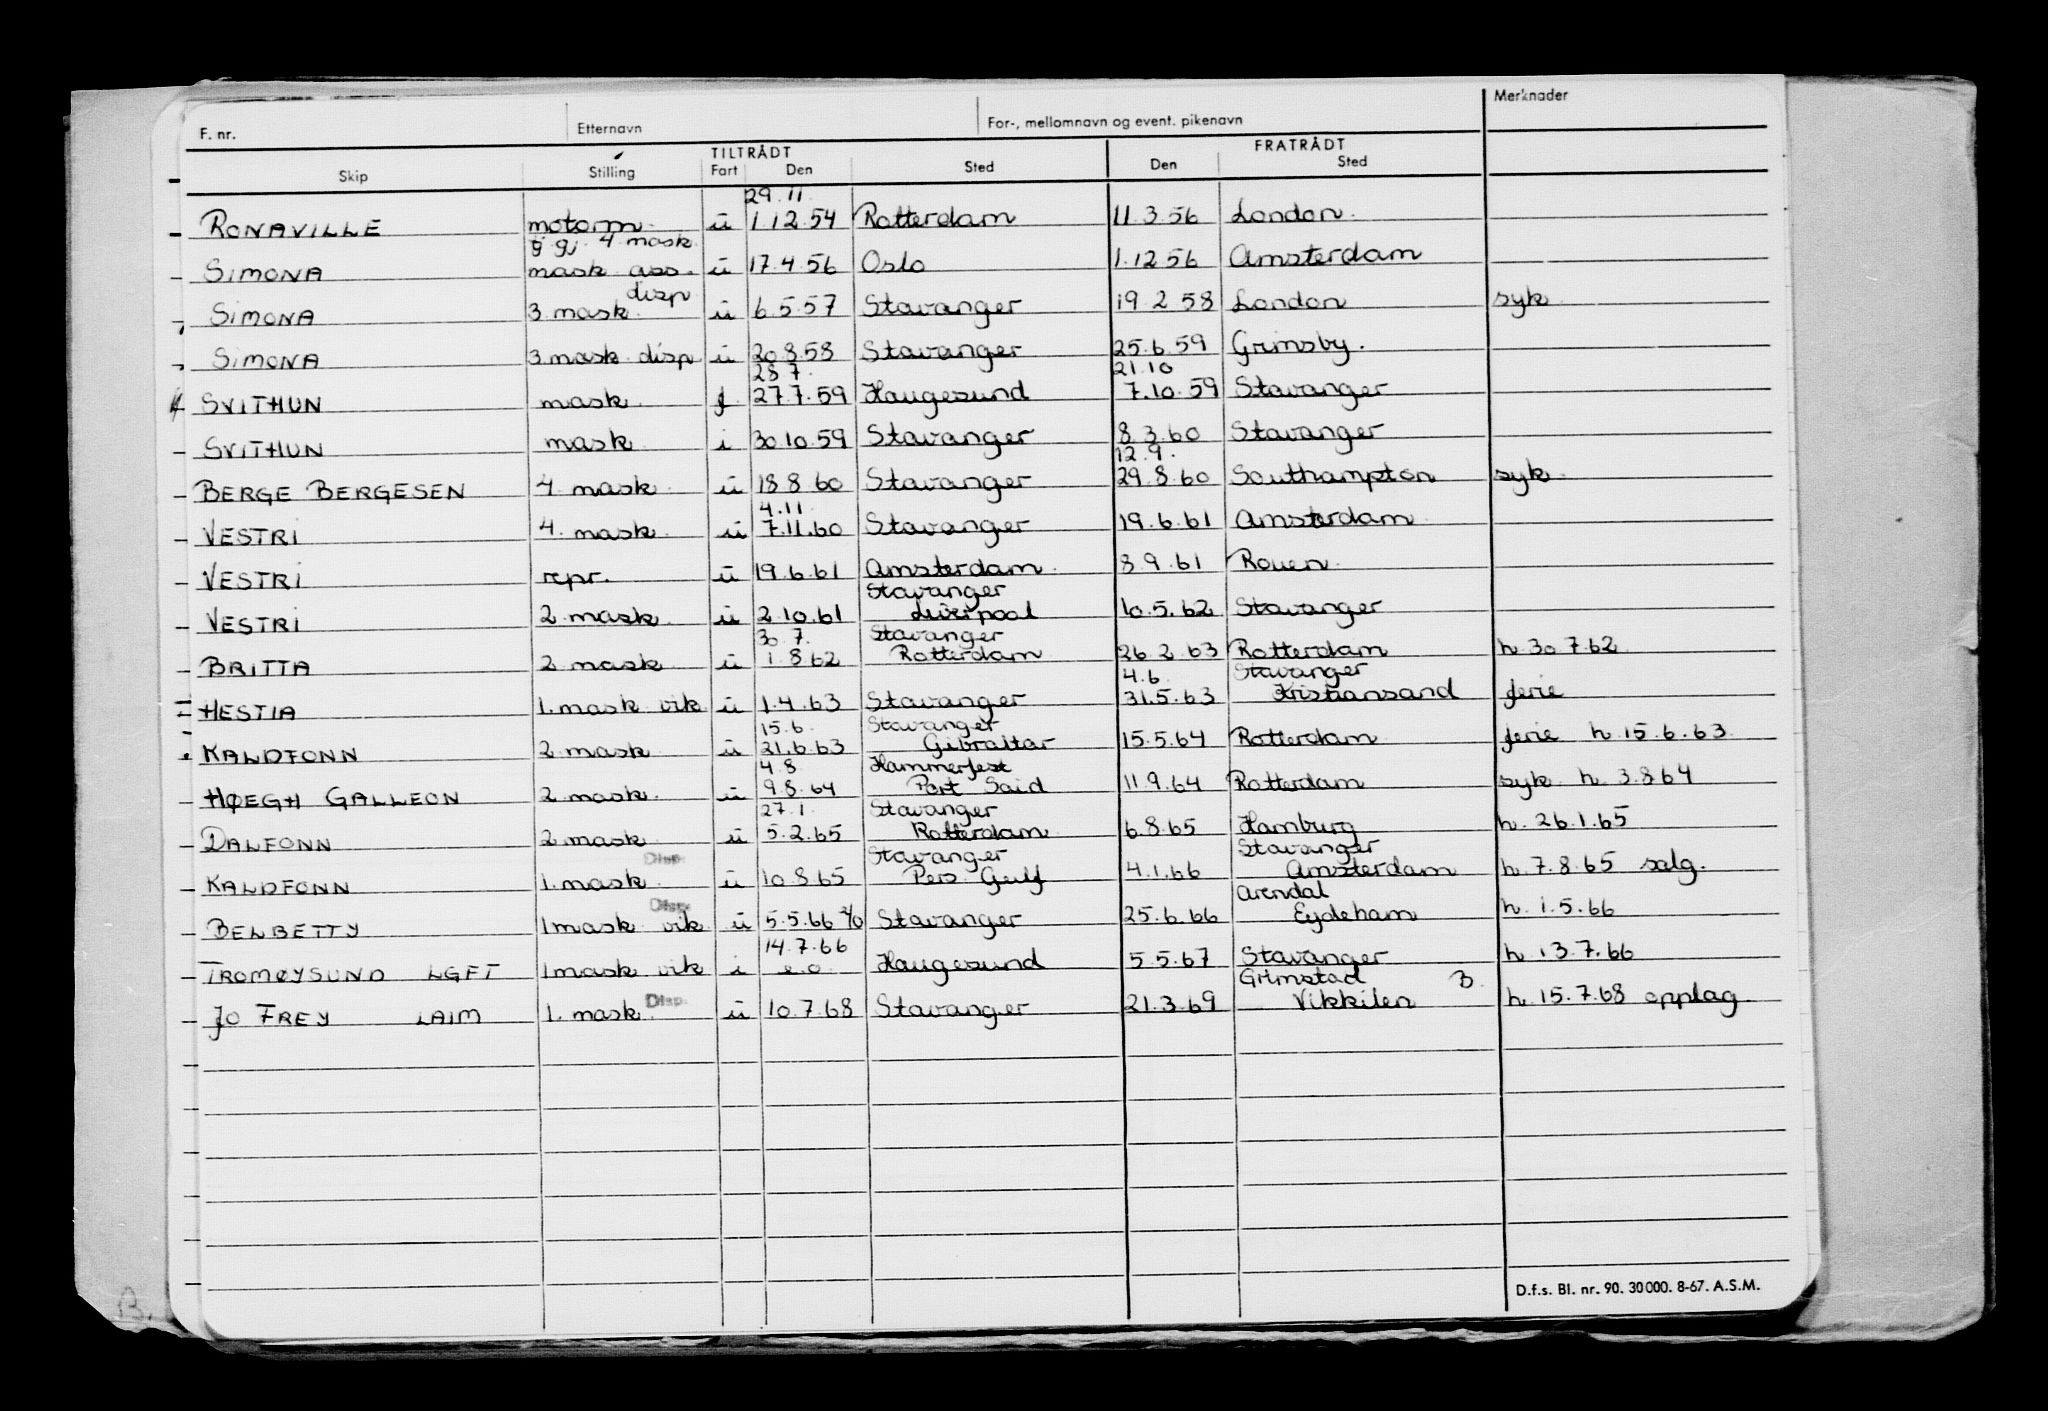 F. nr. Etternavn For-, mellomnavn og event. pikenavn Merknader
TILTRÅDT FRATRÅDT
Skip Stilling Fart Den Sted Den Sted
29.11
RONAVILLE motorm. ü 1.12.54 Rotterdam 11.3.56 London.
g. gj. 4 mask.
SIMONA mask ass. ü 17.4.56 Oslo 1.12.56 Amsterdam
disp
SIMONA 3. mask. ü 6.5.57 Stavanger 19.2.58 London syk
SIMONA 3. mask. disp ü 20.8.58 Stavanger 25.6.59 Grimsby.
28.7. 21.10
SVITHUN mask. f 27.7.59 Haugesund 7.10.59 Stavanger
SVITHUN mask i 30.10.59 Stavanger 8.3.60 Stavanger
12.9.
BERGE BERGESEN 4. mask. ü 18.8.60 Stavanger 29.8.60 Southampton syk.
4.11.
VESTRI 4. mask. ü 7.11.60 Stavanger 19.6.61 Amsterdam.
VESTRI repr. ü 19.6.61 Amsterdam. 8.9.61 Rouen.
Stavanger
VESTRI 2. mask. ü 2.10.61 Liverpool 10.5.62 Stavanger
30.7. Stavanger
BRITTA 2. mask. ü 1.8.62 Rotterdam 26.2.63 Rotterdam h. 30.7.62
4.6. Stavanger
HESTIA 1. mask vik ü 1.4.63 Stavanger 31.5.63 Kristiansand ferie
15.6. Stavanger
KALDFONN 2. mask. ü 21.6.63 Gibraltar 15.5.64 Rotterdam ferie h. 15.6.63
4.8. Hammerfest
HØEGH GALLEON 2. mask. ü 9.8.64 Port Said 11.9.64 Rotterdam syk. h. 3.8.64
27.1. Stavanger
DALFONN 2. mask. ü 5.2.65 Rotterdam 6.8.65 Hamburg h. 26.1.65
Disp. Stavanger Stavanger
KALDFONN 1. mask. ü 10.8.65 Pers. Gulf 4.1.66 Amsterdam h. 7.8.65 salg.
Disp. Arendal
BELBETTY 1 mask vik ü 5.5.66 Stavanger 25.6.66 Eydeham h. 1.5.66
14.7.66
TROMØYSUND LGFT 1 mask vik i e.o. Haugesund 5.5.67 Stavanger h. 13.7.66
Disp. Grimstad B.
JO FREY LAIM 1. mask. ü 10.7.68 Stavanger 21.3.69 Vikkilen h. 15.7.68 opplag
D.f.s. Bl. nr. 90. 30000. 8-67. A.S.M.
B.